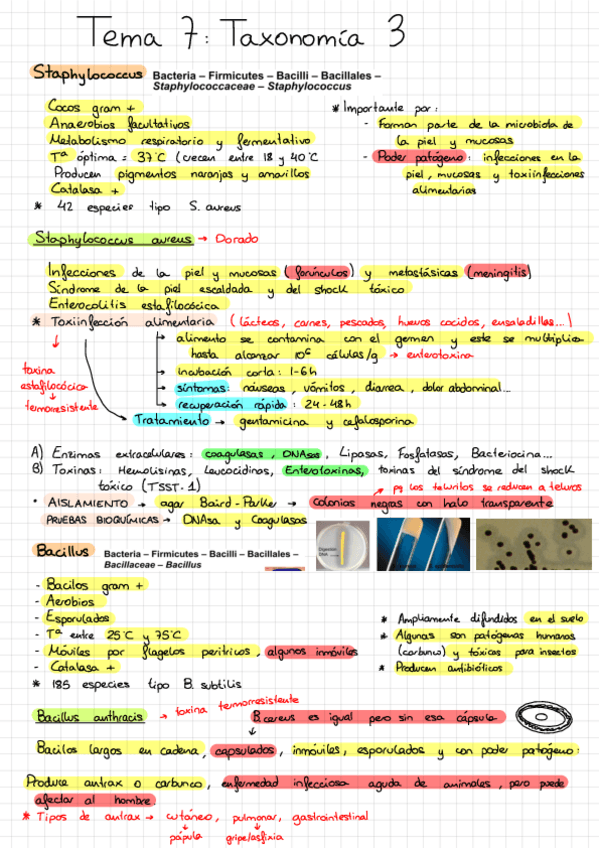 Tema 7: Taxonomía 3
Staphylococcus Bacteria – Firmicutes – Bacilli – Bacillales –
Staphylococcaceae – Staphylococcus
Cocos gram +
Anaerobios facultativos
Metabolismo respiratorio y fermentativo
Tª óptima = 37°C (crecen entre 18 y 40°C
Producen pigmentos naranjas y amarillos
Catalasa +
* 42 especies tipo S. aureus
* Importante por:
- Forman parte de la microbiota de
la piel y mucosas
- Poder patógeno: infecciones en la
piel, mucosas y toxiinfecciones
alimentarias
Staphylococcus aureus → Dorado
Infecciones de la piel y mucosas (forúnculos) y metastásicas (meningitis)
Síndrome de la piel escaldada y del shock tóxico
Enterocolitis estafilocócica
* Toxiinfección alimentaria (lácteos, carnes, pescados, huevos cocidos, ensaladillas...)
→ alimento se contamina con el germen y este se multiplica
hasta alcanzar 10⁶ células/g → enterotoxina
→ incubación corta: 1-6h
→ síntomas: náuseas, vómitos, diarrea, dolor abdominal...
→ recuperación rápida: 24-48h
toxina
estafilocócica
↓
termorresistente
Tratamiento → gentamicina y cefalosporina
A) Enzimas extracelulares: coagulasas, DNAsas, Lipasas, Fosfatasas, Bacteriocina...
B) Toxinas: Hemolisinas, Leucocidinas, Enterotoxinas, toxinas del síndrome del shock
tóxico (TSST-1)
→ pq los teluritos se reducen a teluros
• AISLAMIENTO → agar Baird-Parker → Colonias negras con halo transparente
PRUEBAS BIOQUÍMICAS → DNAsa y Coagulasas
Digestión
DNA
Bacillus Bacteria – Firmicutes – Bacilli – Bacillales –
Bacillaceae – Bacillus
- Bacilos gram +
- Aerobios
- Esporulados
- Tª entre 25°C y 75°C
- Móviles por flagelos perítricos, algunos inmóviles
- Catalasa +
* 185 especies tipo B. subtilis
* Ampliamente difundidos en el suelo
* Algunas son patógenas humanas
(carbunco) y tóxicas para insectos
* Producen antibióticos
Bacillus anthracis → toxina termorresistente
B. cereus es igual pero sin esa cápsula
Bacilos largos en cadena, capsulados, inmóviles, esporulados y con poder patógeno:
Produce antrax o carbunco, enfermedad infecciosa aguda de animales, pero puede
afectar al hombre.
* Tipos de antrax → cutáneo, pulmonar, gastrointestinal
pápula gripe/asfixia